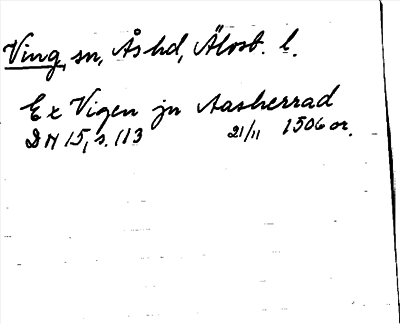 Ving, sn, Ås hd, Älvsb. l.
Ex Vigen jn Aasherrad
DN 15, s. 113 21/11 1506 or.